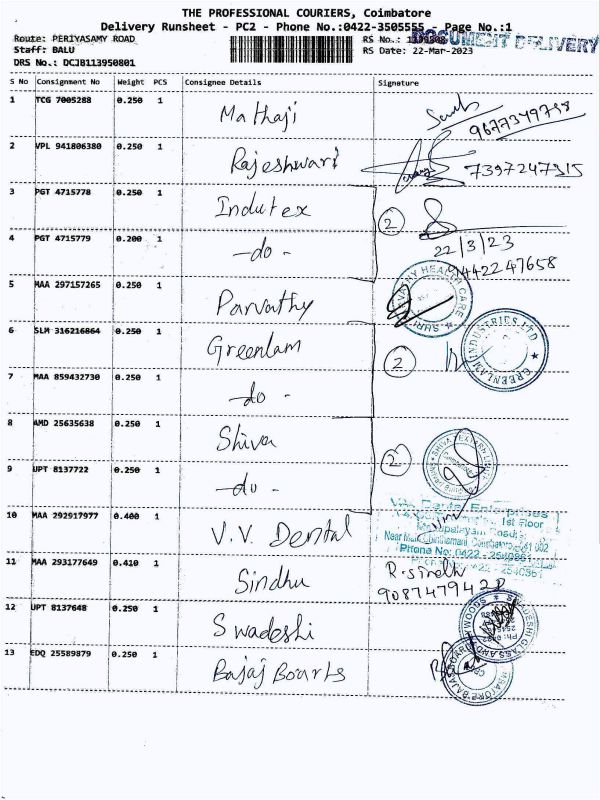 THE PROFESSIONAL COURIERS, Coimbatore
Delivery Runsheet - PC2 - Phone No.:0422-3505555 - Page No.:1
Route: PERIYASAMY ROAD RS No.:
DOCUMENT DELIVERY
Staff: BALU RS Date: 22-Mar-2023
DRS No.: DCJB113950801
S No Consignment No Weight PCS Consignee Details Signature
1 TCG 7005288 0.250 1 Mathaji
9677349798
2 VPL 941806380 0.250 1 Rajeshwari 7397247915
3 PGT 4715778 0.250 1 Indutex 2
4 PGT 4715779 0.200 1 -do- 22/3/23
9442247658
5 MAA 297157265 0.250 1 Parvathy
6 SLM 316216864 0.250 1 Greenlam 2
GREENLAM INDUSTRIES LTD
7 MAA 859432730 0.250 1 -do-
8 AMD 25635638 0.250 1 Shiva 2
9 UPT 8137722 0.250 1 -do-
10 MAA 292917977 0.400 1 V.V. Dental
1st Floor
Phone No: 0422 - 2540861
11 MAA 293177649 0.410 1 Sindhu R. Sindh
9087479422
12 UPT 8137648 0.250 1 Swadeshi
SWADESHI GLASS AND PLYWOODS
13 EDQ 25589879 0.250 1 Bajaj Boarts